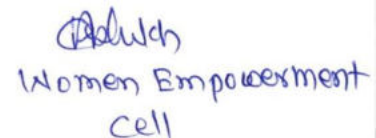 Women Empowerment
Cell